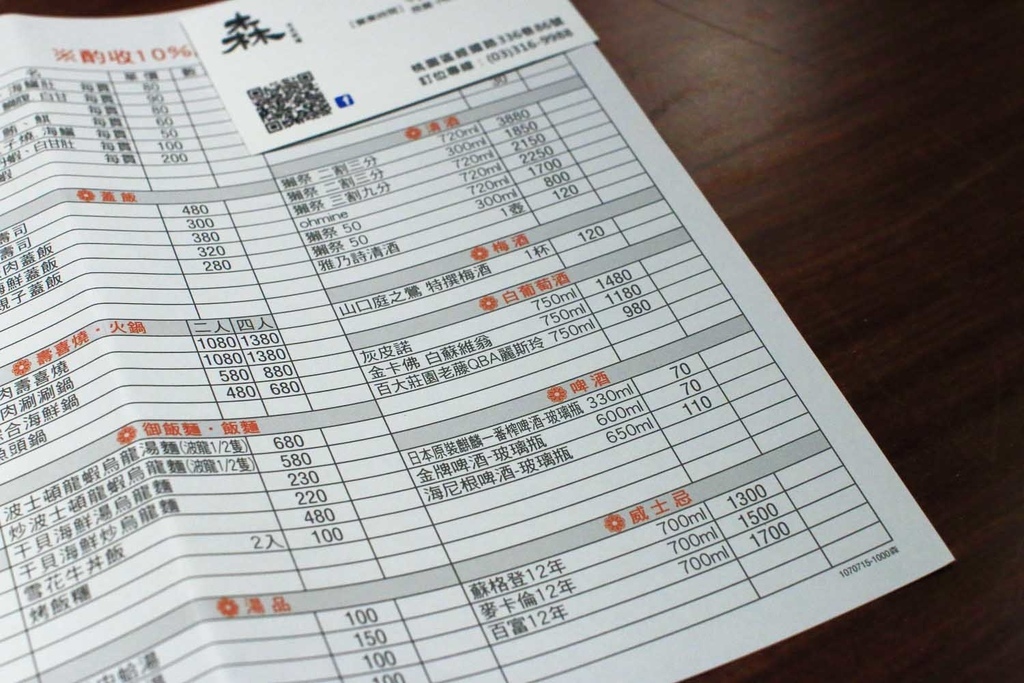 ※酌收10%
單價
每貫 80
每貫 50
每貫 80
每貫 50
每貫 100
每貫 200
蓋飯
壽司 480
壽司 300
肉蓋飯 380
海鮮蓋飯 320
親子蓋飯 280
壽喜燒・火鍋 二人 四人
肉壽喜燒 1080 1380
肉涮涮鍋 1080 1380
綜合海鮮鍋 580 880
魚頭鍋 480 680
御飯麵・飯麵
波士頓龍蝦烏龍湯麵(波龍1/2隻) 680
炒波士頓龍蝦烏龍麵(波龍1/2隻) 580
干貝海鮮湯烏龍麵 230
干貝海鮮炒烏龍麵 220
雪花牛丼飯 480
烤飯糰 2入 100
湯品
100
150
100
100
森
桃園區經國路336巷86號
訂位專線：(03)316-9988
清酒
獺祭 二割三分 720ml 3880
獺祭 三割三分 300ml 1850
獺祭 三割九分 720ml 2150
ohmine 720ml 2250
獺祭 50 720ml 1700
獺祭 50 300ml 800
雅乃詩清酒 1壺 120
梅酒
山口庭之鶯 特撰梅酒 1杯 120
白葡萄酒
灰皮諾 750ml 1480
金卡佛 白蘇維翁 750ml 1180
百大莊園老藤QBA麗斯玲 750ml 980
啤酒
日本原裝麒麟一番榨啤酒-玻璃瓶 330ml 70
金牌啤酒-玻璃瓶 600ml 70
海尼根啤酒-玻璃瓶 650ml 110
威士忌
蘇格登12年 700ml 1300
麥卡倫12年 700ml 1500
百富12年 700ml 1700
1070715-1000森